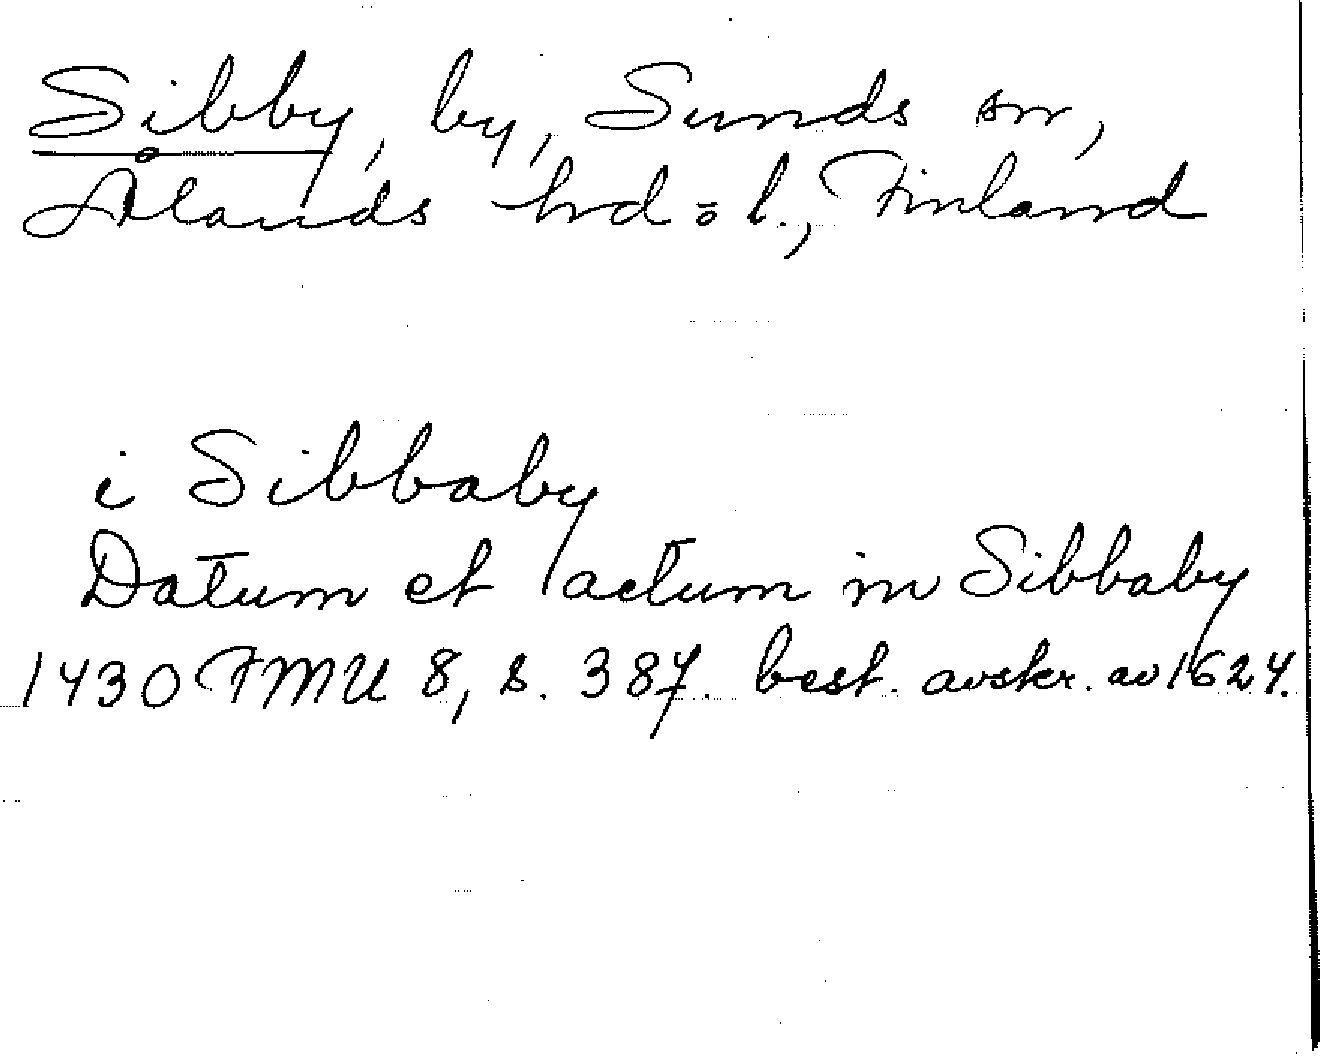 Sibby, by, Sunds sn,
Ålands hrd = l., Finland
i Sibbaby
Datum et actum in Sibbaby
1430 FMU 8, s. 387. best. avskr. av 1624.